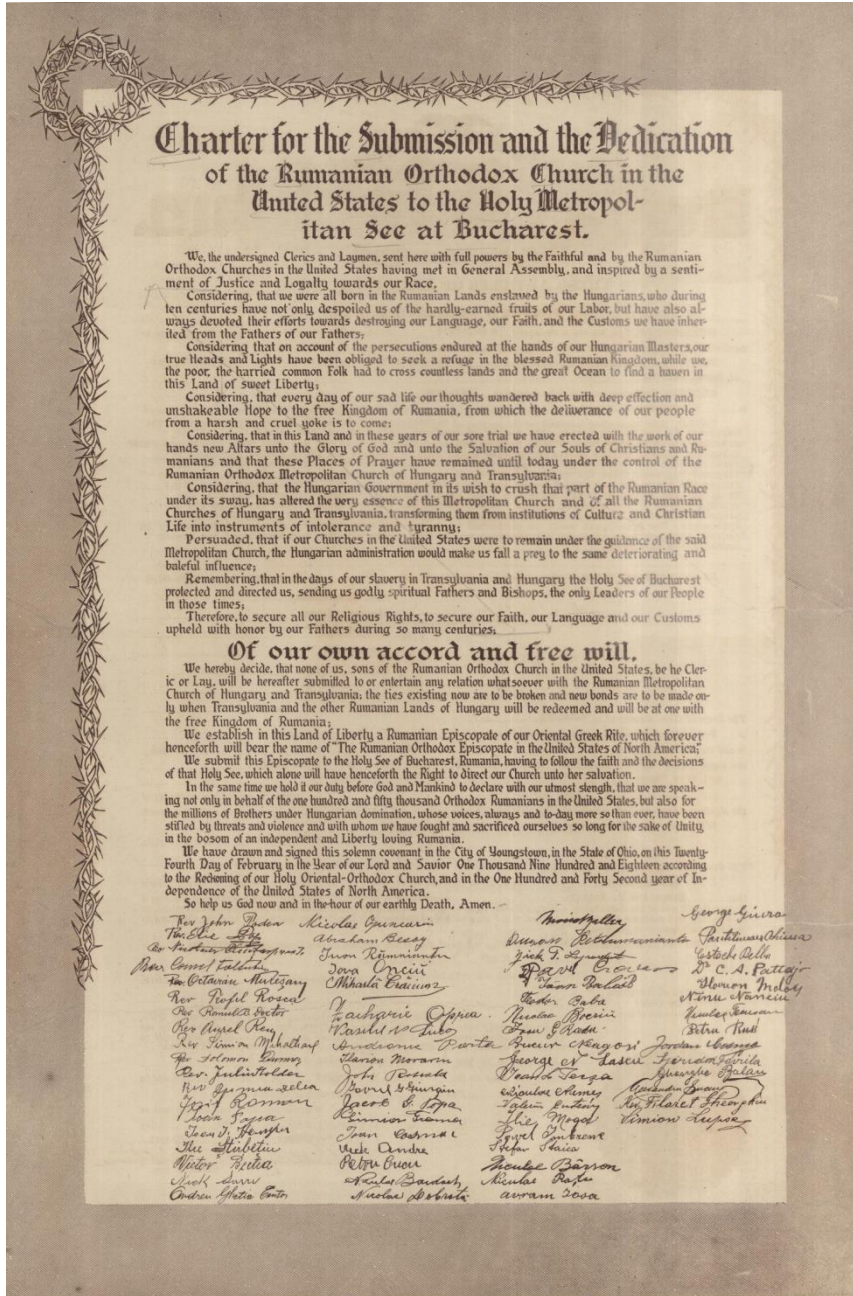 Charter for the Submission and the Dedication
of the Rumanian Orthodox Church in the
United States to the Holy Metropol-
itan See at Bucharest.
We, the undersigned Clerics and Laymen, sent here with full powers by the Faithful and by the Rumanian
Orthodox Churches in the United States having met in General Assembly, and inspired by a senti-
ment of Justice and Loyalty towards our Race,
Considering, that we were all born in the Rumanian Lands enslaved by the Hungarians, who during
ten centuries have not only despoiled us of the hardly-earned fruits of our Labor, but have also al-
ways devoted their efforts towards destroying our Language, our Faith, and the Customs we have inher-
ited from the Fathers of our Fathers;
Considering that on account of the persecutions endured at the hands of our Hungarian Masters, our
true Heads and Lights have been obliged to seek a refuge in the blessed Rumanian Kingdom, while we,
the poor, the harried common Folk had to cross countless lands and the great Ocean to find a haven in
this Land of sweet Liberty;
Considering, that every day of our sad life our thoughts wandered back with deep effection and
unshakeable Hope to the free Kingdom of Rumania, from which the deliverance of our people
from a harsh and cruel yoke is to come;
Considering, that in this Land and in these years of our sore trial we have erected with the work of our
hands new Altars unto the Glory of God and unto the Salvation of our Souls of Christians and Ru-
manians and that these Places of Prayer have remained until today under the control of the
Rumanian Orthodox Metropolitan Church of Hungary and Transylvania;
Considering, that the Hungarian Government in its wish to crush that part of the Rumanian Race
under its sway, has altered the very essence of this Metropolitan Church and of all the Rumanian
Churches of Hungary and Transylvania, transforming them from institutions of Culture and Christian
Life into instruments of intolerance and tyranny;
Persuaded, that if our Churches in the United States were to remain under the guidance of the said
Metropolitan Church, the Hungarian administration would make us fall a prey to the same deteriorating and
baleful influence;
Remembering, that in the days of our slavery in Transylvania and Hungary the Holy See of Bucharest
protected and directed us, sending us godly spiritual Fathers and Bishops, the only Leaders of our People
in those times;
Therefore, to secure all our Religious Rights, to secure our Faith, our Language and our Customs
upheld with honor by our Fathers during so many centuries;
Of our own accord and free will.
We hereby decide, that none of us, sons of the Rumanian Orthodox Church in the United States, be he Cler-
ic or Lay, will be hereafter submitted to or entertain any relation whatsoever with the Rumanian Metropolitan
Church of Hungary and Transylvania; the ties existing now are to be broken and new bonds are to be made on-
ly when Transylvania and the other Rumanian Lands of Hungary will be redeemed and will be at one with
the free Kingdom of Rumania;
We establish in this Land of Liberty a Rumanian Episcopate of our Oriental Greek Rite, which forever
henceforth will bear the name of "The Rumanian Orthodox Episcopate in the United States of North America;"
We submit this Episcopate to the Holy See of Bucharest, Rumania, having to follow the faith and the decisions
of that Holy See, which alone will have henceforth the Right to direct our Church unto her salvation.
In the same time we hold it our duty before God and Mankind to declare with our utmost stength, that we are speak-
ing not only in behalf of the one hundred and fifty thousand Orthodox Rumanians in the United States, but also for
the millions of Brothers under Hungarian domination, whose voices, always and to-day more so than ever, have been
stifled by threats and violence and with whom we have fought and sacrificed ourselves so long for the sake of Unity,
in the bosom of an independent and Liberty loving Rumania.
We have drawn and signed this solemn covenant in the City of Youngstown, in the State of Ohio, on this Twenty-
Fourth Day of February in the Year of our Lord and Savior One Thousand Nine Hundred and Eighteen according
to the Reckoning of our Holy Oriental-Orthodox Church, and in the One Hundred and Forty Second year of In-
dependence of the United States of North America.
So help us God now and in the hour of our earthly Death, Amen.
Rev John Podea
Rev Octavian Mureșan
Rev Teofil Rosca
Rev Romul Doctor
Rev Simion Mihaltian
Rev Solomon
Iosif Roman
Ioan Popa
Ilie
Victor
Nick
Nicolae
Abraham
Iova Onciu
Mihaila
Zacharie Oppica
Ilarion Morariu
John
Jacob G. Popa
Ioan
Petru
Nicolae
Moise Beller
Pavel
Todor Baba
Nicolae
George N Lascu
Ilie Moga
Stefan Staica
Niculae
avram
George
Dr C. A.
Petru Rus
Gheorghe Balan
Rev Filaret Gheorghiu
Simion Lupea